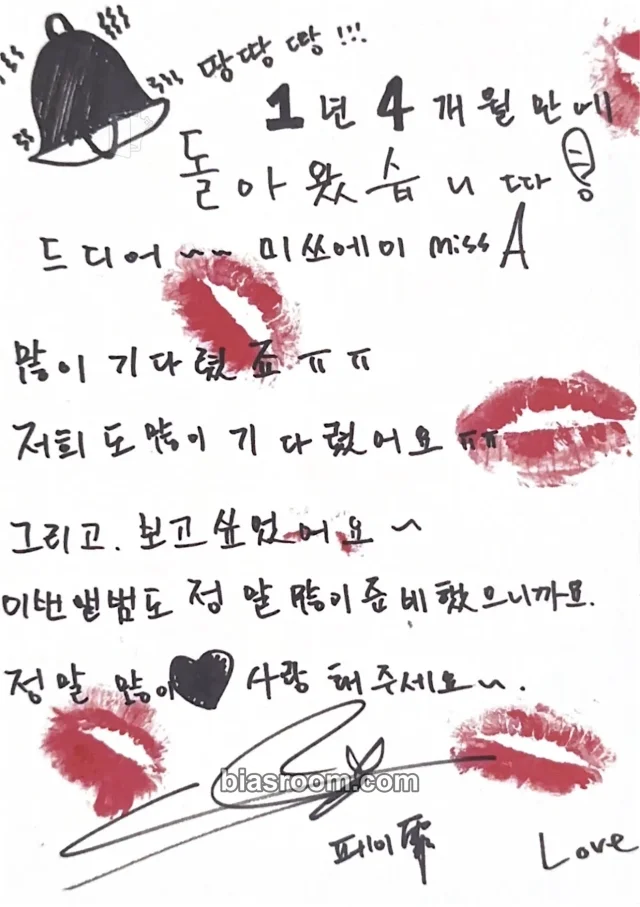 땅땅 땅!!!
1년 4개월만에
돌아왔습니따!
드디어~~ 미쓰에이 miss A
많이 기다렸죠 ㅠㅠ
저희도 많이 기다렸어요 ㅠㅠ
그리고. 보고싶었어요~
이번앨범도 정말 많이준비했으니까요.
정말 많이♥ 사랑해주세요~.
biasroom.com
페이 霏
Love